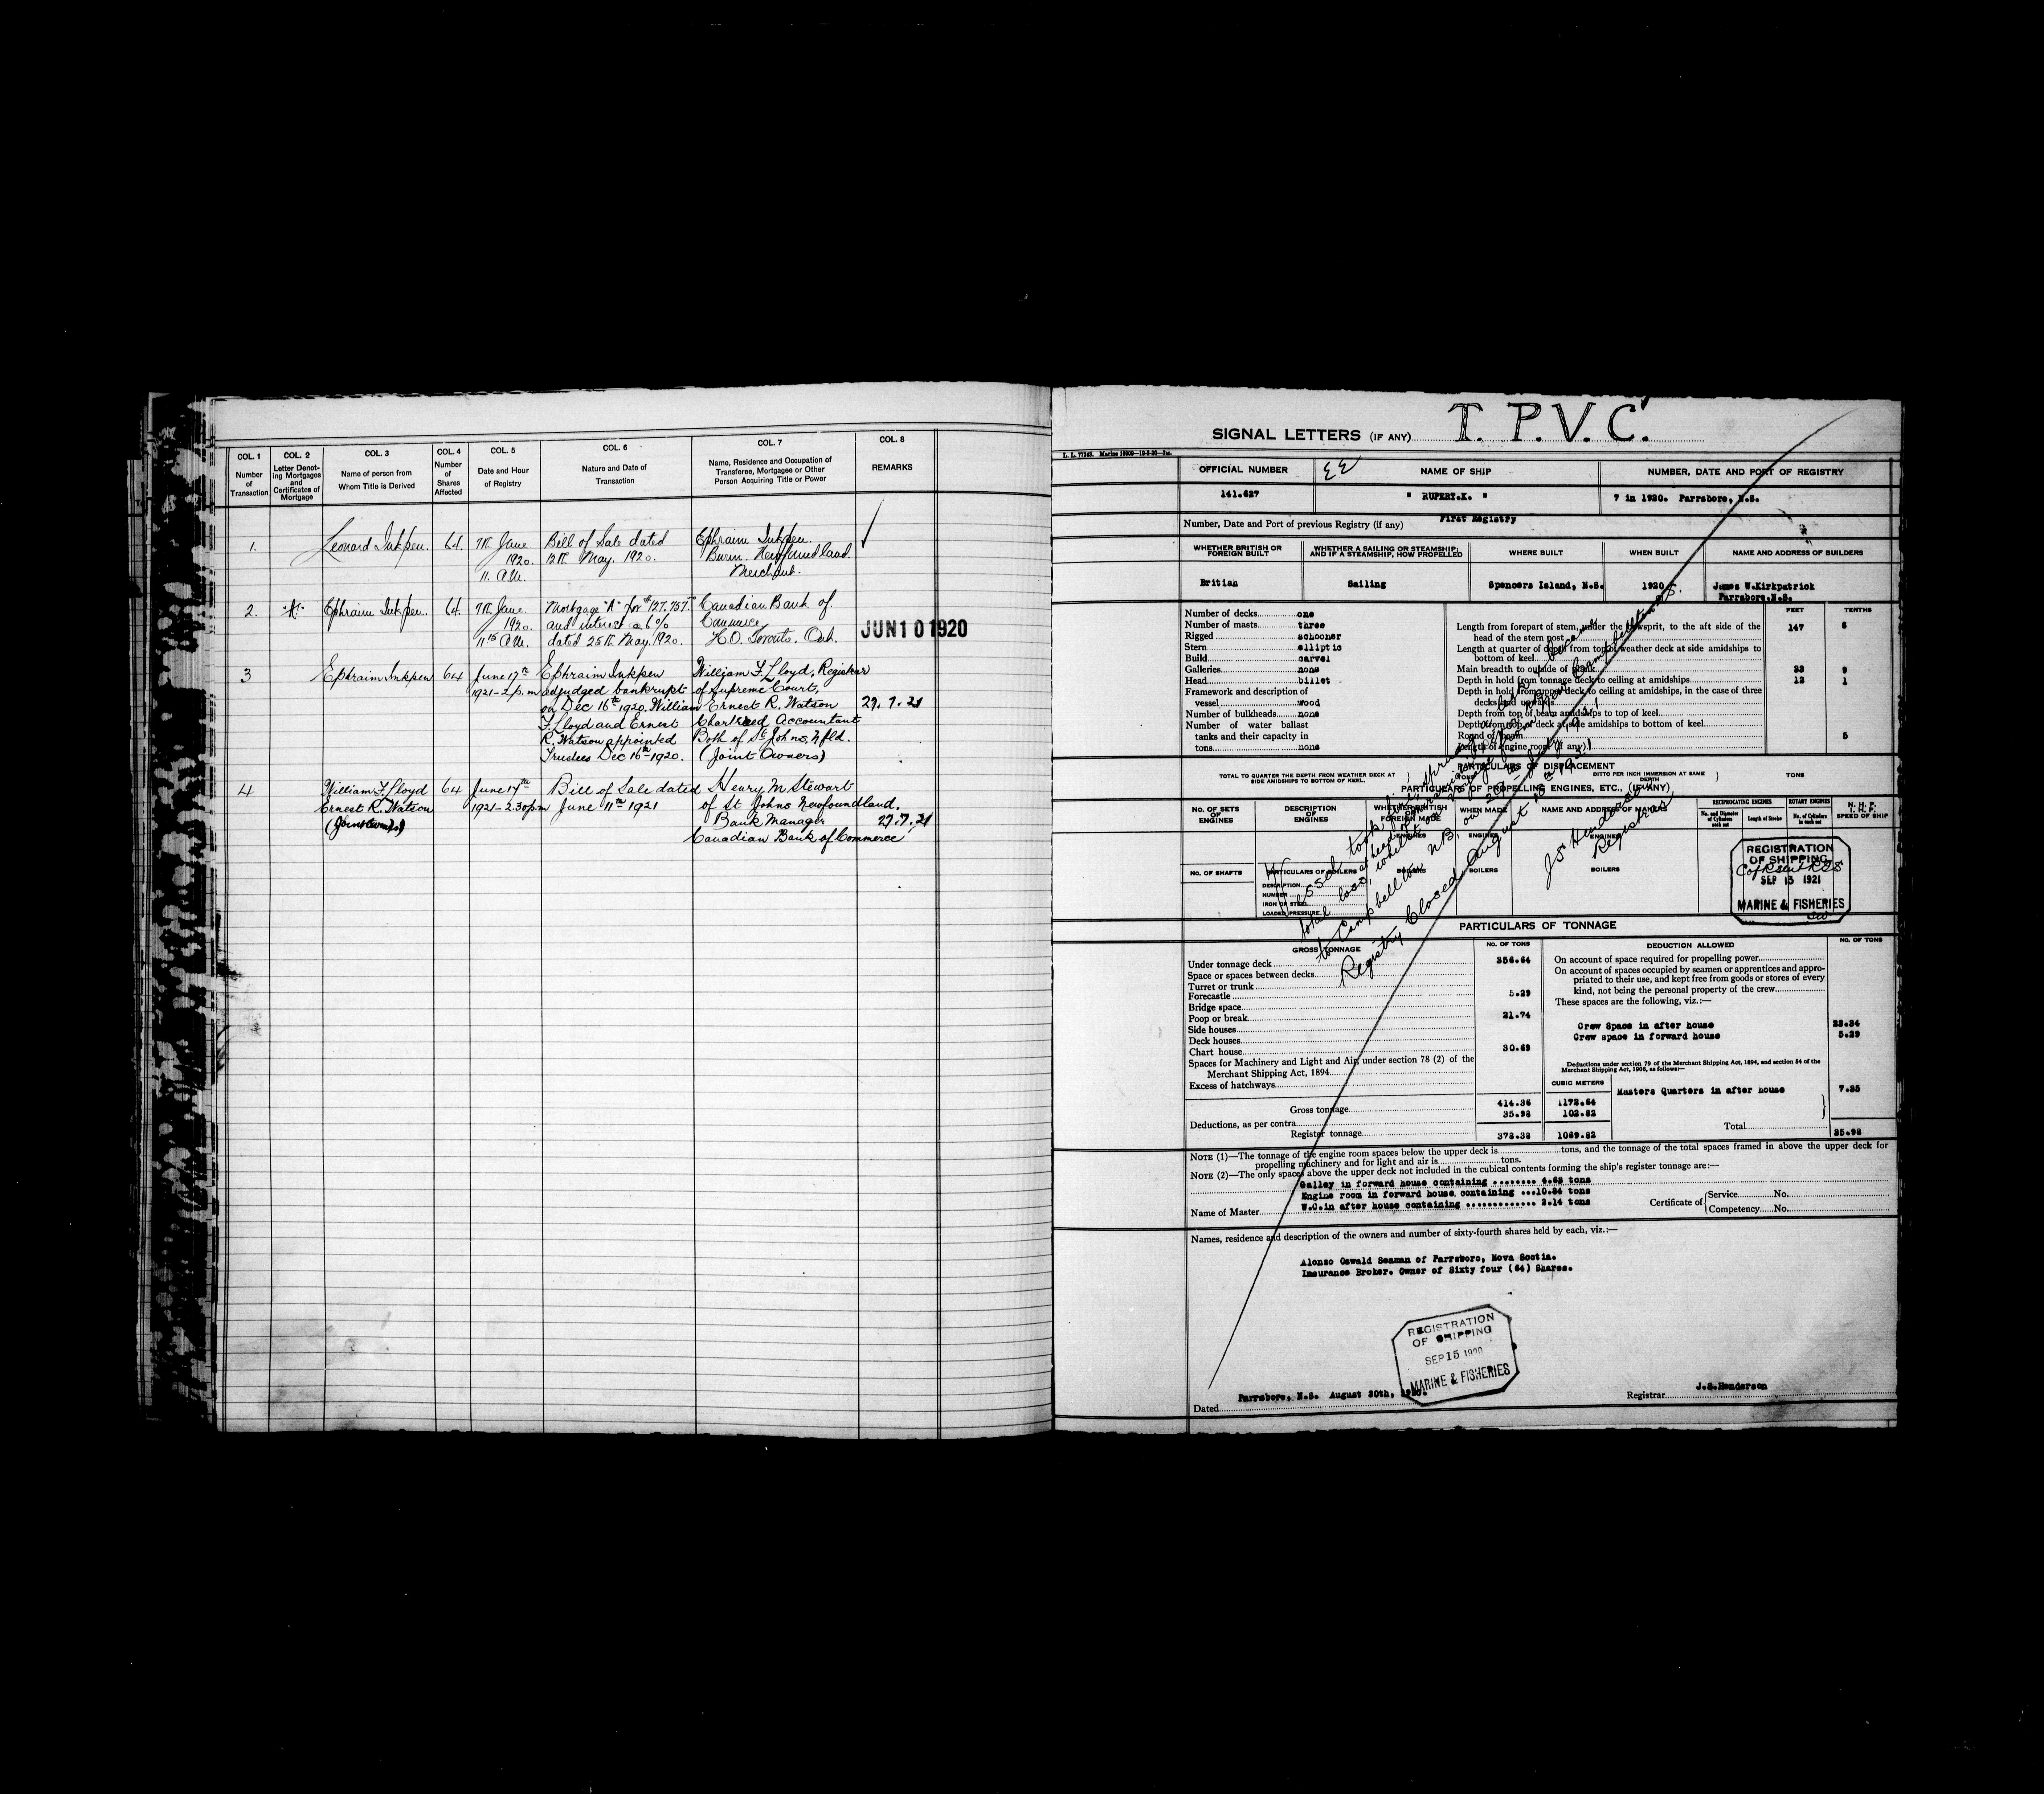 COL. 1
Number
of
Transaction
COL. 2
Letter Denot-
ing Mortgages
and
Certificates of
Mortgage
COL. 3
Name of person from
Whom Title is Derived
COL. 4
Number
of
Shares
Affected
COL. 5
Date and Hour
of Registry
COL. 6
Nature and Date of
Transaction
COL. 7
Name, Residence and Occupation of
Transferee, Mortgagee or Other
Person Acquiring Title or Power
COL. 8
REMARKS
1. Leonard Inkpen. 64. 7th June Bill of Sale dated Ephraim Inkpen.
1920. 12th May. 1920. Burin. Newfoundland.
11. A.M. Merchant.
2. "A" Ephraim Inkpen. 64. 7th June Mortgage "A" for $127.757. Canadian Bank of
1920. and interest @ 6% Commerce
11 A.M. dated 25th May. 1920. H.O. Toronto. Ont. JUN 10 1920
3 Ephraim Inkpen 64 June 17th Ephraim Inkpen William F. Lloyd, Registrar
1921-2 p.m adjudged bankrupt of Supreme Court,
on Dec 16th 1920. William Ernest R. Watson 29.7.21
F. Lloyd and Ernest Chartered Accountant
R. Watson appointed Both of St. Johns, Nfld.
Trustees Dec 16th-1920. (Joint Owners)
4 William F. Lloyd 64 June 17th Bill of Sale dated Henry M Stewart
Ernest R. Watson 1921-2.30 pm June 11th 1921 of St Johns Newfoundland.
(Joint Owners) Bank Manager 27.7.21
Canadian Bank of Commerce
SIGNAL LETTERS (IF ANY) T. P. V. C.
L. L. 77343. Marine 16909—19-3-20—3M.
OFFICIAL NUMBER
NAME OF SHIP
NUMBER, DATE AND PORT OF REGISTRY
141.627 " RUPERT.K. " 7 in 1920. Parrsboro, N.S.
Number, Date and Port of previous Registry (if any) First Registry
WHETHER BRITISH OR
FOREIGN BUILT
WHETHER A SAILING OR STEAMSHIP;
AND IF A STEAMSHIP, HOW PROPELLED
WHERE BUILT
WHEN BUILT
NAME AND ADDRESS OF BUILDERS
British Sailing Spencers Island, N.S. 1920 James W.Kirkpatrick
Parrsboro.N.S.
FEET TENTHS
Number of decks one
Number of masts three
Rigged schooner
Stern elliptic
Build carvel
Galleries none
Head billet
Framework and description of
vessel wood
Number of bulkheads none
Number of water ballast
tanks and their capacity in
tons none
Length from forepart of stem, under the bowsprit, to the aft side of the
head of the stern post 147 6
Length at quarter of depth from top of weather deck at side amidships to
bottom of keel
Main breadth to outside of plank 33 9
Depth in hold from tonnage deck to ceiling at amidships 12 1
Depth in hold from upper deck to ceiling at amidships, in the case of three
decks and upwards
Depth from top of beam amidships to top of keel
Depth from top of deck at side amidships to bottom of keel
Round of beam 5
Length of engine room (if any)
PARTICULARS OF DISPLACEMENT
TOTAL TO QUARTER THE DEPTH FROM WEATHER DECK AT
SIDE AMIDSHIPS TO BOTTOM OF KEEL.
TONS
DITTO PER INCH IMMERSION AT SAME
DEPTH
TONS
PARTICULARS OF PROPELLING ENGINES, ETC., (IF ANY)
NO. OF SETS
OF
ENGINES
DESCRIPTION
OF
ENGINES
WHETHER BRITISH
OR
FOREIGN MADE
WHEN MADE
NAME AND ADDRESS OF MAKERS
RECIPROCATING ENGINES
No. and Diameter
of Cylinders
each set
Length of Stroke
ROTARY ENGINES
No. of Cylinders
in each set
N. H. P.
I. H. P.
SPEED OF SHIP
ENGINES ENGINES ENGINES
NO. OF SHAFTS
PARTICULARS OF BOILERS
DESCRIPTION
NUMBER
IRON OR STEEL
LOADED PRESSURE
BOILERS BOILERS BOILERS
Vessel took fire
total loss, whilst on voyage from
to Campbellton NB, on 29th July 1921
Registry Closed August 1921
J S Henderson
Registrar
REGISTRATION
OF SHIPPING
SEP 13 1921
MARINE & FISHERIES
PARTICULARS OF TONNAGE
GROSS TONNAGE NO. OF TONS
DEDUCTION ALLOWED NO. OF TONS
Under tonnage deck 356.64
Space or spaces between decks
Turret or trunk
Forecastle 5.29
Bridge space
Poop or break 21.74
Side houses
Deck houses
Chart house 30.69
Spaces for Machinery and Light and Air, under section 78 (2) of the
Merchant Shipping Act, 1894
Excess of hatchways
On account of space required for propelling power
On account of spaces occupied by seamen or apprentices and appro-
priated to their use, and kept free from goods or stores of every
kind, not being the personal property of the crew
These spaces are the following, viz.:—
Crew Space in after house 23.34
Crew space in forward house 5.29
Deductions under section 79 of the Merchant Shipping Act, 1894, and section 54 of the
Merchant Shipping Act, 1906, as follows:—
CUBIC METERS
Masters Quarters in after house 7.35
Gross tonnage 414.36 1172.64
Deductions, as per contra 35.98 102.82
Register tonnage 378.38 1069.82
Total 35.98
NOTE (1)—The tonnage of the engine room spaces below the upper deck is tons, and the tonnage of the total spaces framed in above the upper deck for
propelling machinery and for light and air is tons.
NOTE (2)—The only spaces above the upper deck not included in the cubical contents forming the ship's register tonnage are:—
Galley in forward house containing ........ 4.63 tons
Engine room in forward house containing ...10.84 tons
W.C.in after house containing ............. 2.14 tons
Name of Master
Certificate of Service No.
Competency No.
Names, residence and description of the owners and number of sixty-fourth shares held by each, viz.:—
Alonzo Oswald Seaman of Parrsboro, Nova Scotia.
Insurance Broker. Owner of Sixty four (64) Shares.
REGISTRATION
OF SHIPPING
SEP 15 1920
MARINE & FISHERIES
Dated Parrsboro, N.S. August 30th, 1920.
Registrar J.S.Henderson